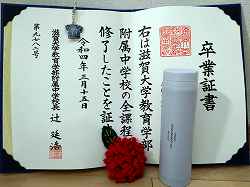 卒業証書
右は滋賀大学教育学部
附属中学校の全課程
修了したことを証
令和四年三月十五日
滋賀大学教育学部附属中学校長 辻 延浩
第九七八号